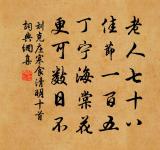 老人七十八
佳節一百五
丁寧海棠花
更可數日不
刘克庄寒食清明十首
詞典網集